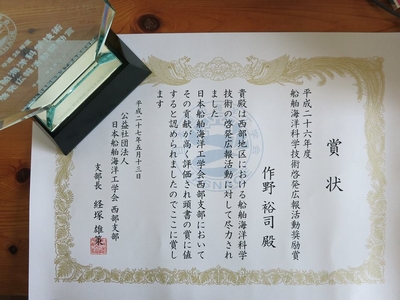 賞状
平成二十六年度
船舶海洋科学技術啓発広報活動奨励賞
作野裕司殿
貴殿は西部地区における船舶海洋科学
技術の啓発広報活動に対して尽力され
ました
日本船舶海洋工学会西部支部において
その貢献が高く評価され頭書の賞に値
すると認められましたのでここに賞し
ます
平成二十七年五月十三日
公益社団法人
日本船舶海洋工学会 西部支部
支部長 経塚雄策